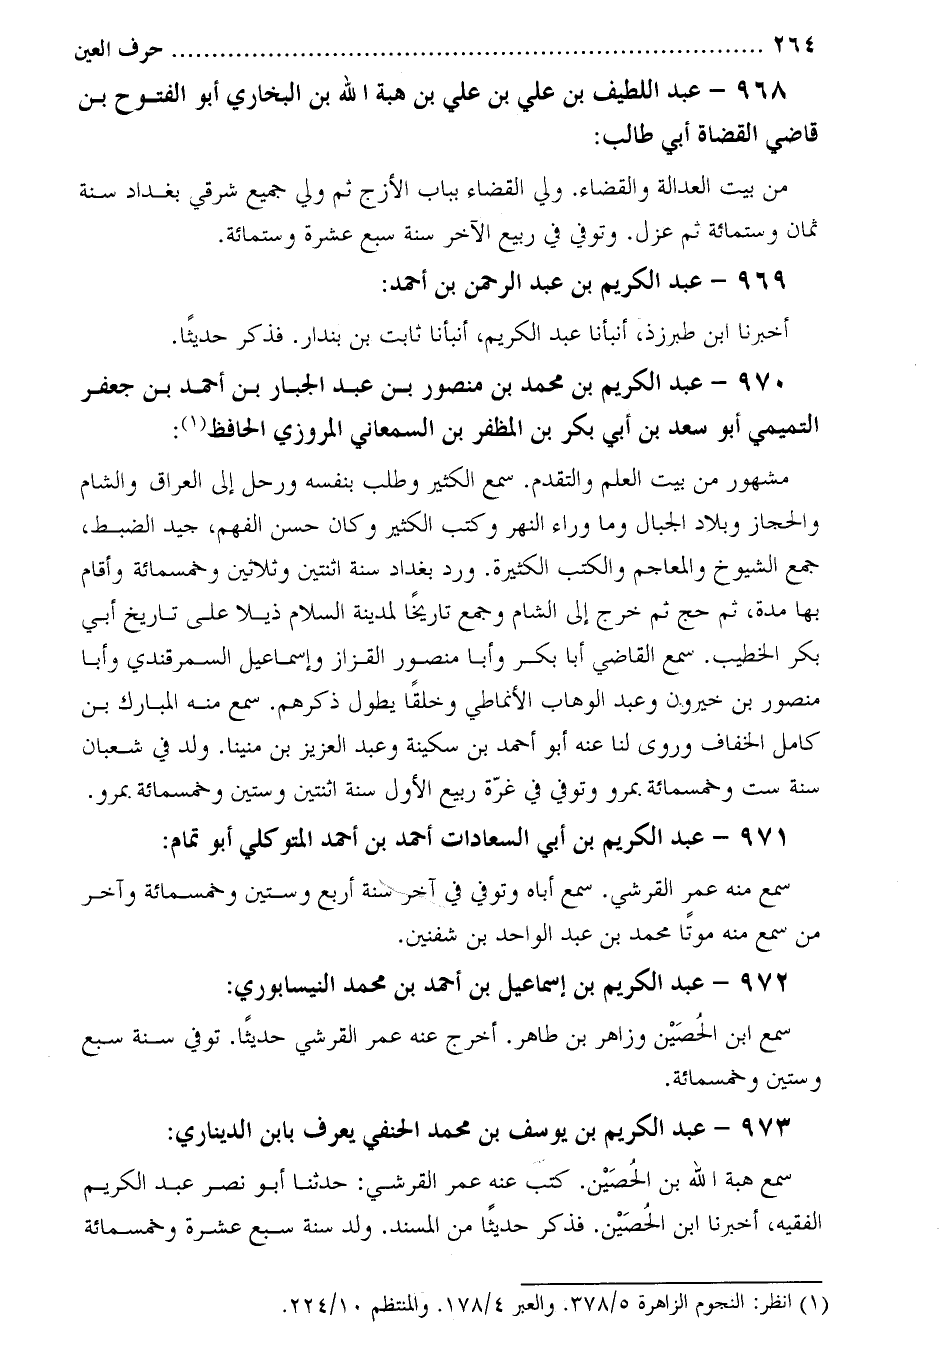 ٢٦٤ ........................................................................ حرف العين
٩٦٨ – عبد اللطيف بن علي بن علي بن هبة الله بن البخاري أبو الفتوح بن
قاضي القضاة أبي طالب:
من بيت العدالة والقضاء. ولي القضاء بباب الأزج ثم ولي جميع شرقي بغداد سنة
ثمان وستمائة ثم عزل. وتوفي في ربيع الآخر سنة سبع عشرة وستمائة.
٩٦٩ – عبد الكريم بن عبد الرحمن بن أحمد:
أخبرنا ابن طبرزذ، أنبأنا عبد الكريم، أنبأنا ثابت بن بندار. فذكر حديثًا.
٩٧٠ – عبد الكريم بن محمد بن منصور بن عبد الجبار بن أحمد بن جعفر
التميمي أبو سعد بن أبي بكر بن المظفر بن السمعاني المروزي الحافظ(١):
مشهور من بيت العلم والتقدم. سمع الكثير وطلب بنفسه ورحل إلى العراق والشام
والحجاز وبلاد الجبال وما وراء النهر وكتب الكثير وكان حسن الفهم، جيد الضبط،
جمع الشيوخ والمعاجم والكتب الكثيرة. ورد بغداد سنة اثنتين وثلاثين وخمسمائة وأقام
بها مدة، ثم حج ثم خرج إلى الشام وجمع تاريخًا لمدينة السلام ذيلا على تاريخ أبي
بكر الخطيب. سمع القاضي أبا بكر وأبا منصور القزاز وإسماعيل السمرقندي وأبا
منصور بن خيرون وعبد الوهاب الأنماطي وخلقًا يطول ذكرهم. سمع منه المبارك بن
كامل الخفاف وروى لنا عنه أبو أحمد بن سكينة وعبد العزيز بن منينا. ولد في شعبان
سنة ست وخمسمائة بمرو وتوفي في غرّة ربيع الأول سنة اثنتين وستين وخمسمائة بمرو.
٩٧١ – عبد الكريم بن أبي السعادات أحمد بن أحمد المتوكلي أبو تمام:
سمع منه عمر القرشي. سمع أباه وتوفي في آخر سنة أربع وستين وخمسمائة وآخر
من سمع منه موتًا محمد بن عبد الواحد بن شفنين.
٩٧٢ – عبد الكريم بن إسماعيل بن أحمد بن محمد النيسابوري:
سمع ابن الحُصَيْن وزاهر بن طاهر. أخرج عنه عمر القرشي حديثًا. توفي سنة سبع
وستين وخمسمائة.
٩٧٣ – عبد الكريم بن يوسف بن محمد الحنفي يعرف بابن الديناري:
سمع هبة الله بن الحُصَيْن. كتب عنه عمر القرشي: حدثنا أبو نصر عبد الكريم
الفقيه، أخبرنا ابن الحُصَيْن. فذكر حديثًا من المسند. ولد سنة سبع عشرة وخمسمائة
(١) انظر: النجوم الزاهرة ٣٧٨/٥. والعبر ١٧٨/٤. والمنتظم ٢٢٤/١٠.